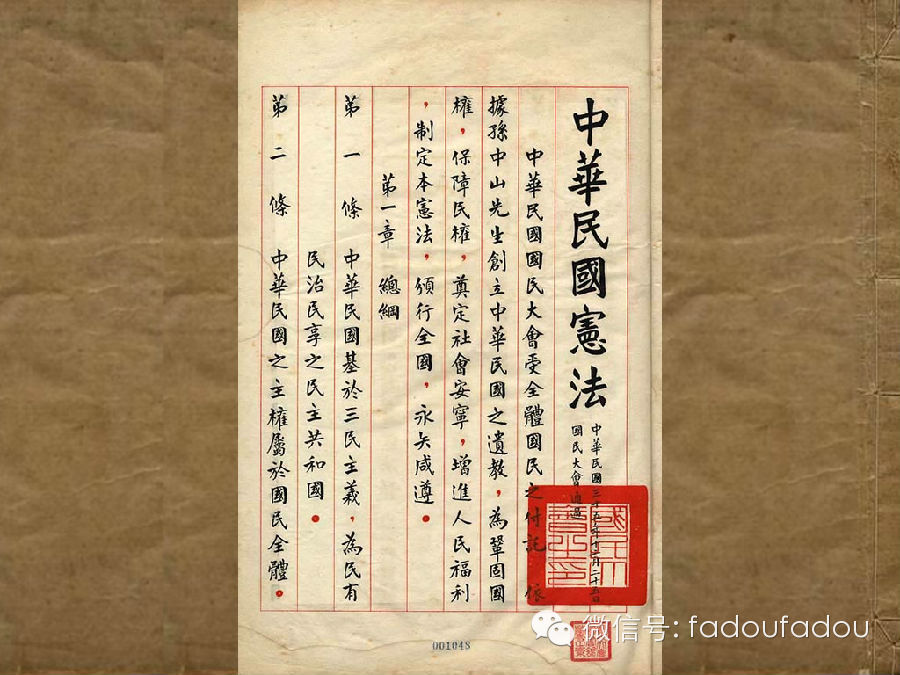 中華民國憲法
中華民國三十五年十二月二十五日
國民大會通過
中華民國國民大會受全體國民之付託 依
據孫中山先生創立中華民國之遺教，為鞏固國
權，保障民權，奠定社會安寧，增進人民福利
，制定本憲法，頒行全國，永矢咸遵。
第一章 總綱
第一條 中華民國基於三民主義，為民有
民治民享之民主共和國。
第二條 中華民國之主權屬於國民全體。
001048
微信号: fadoufadou